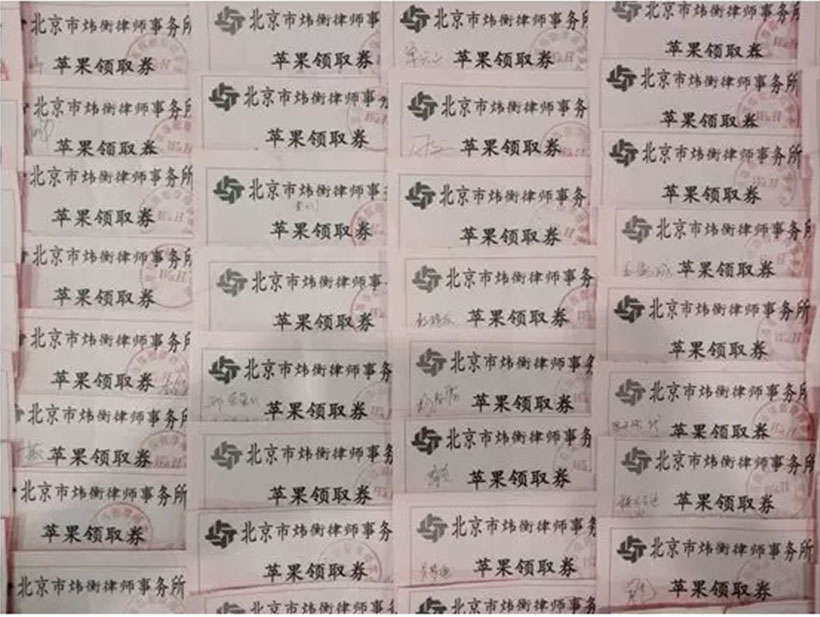 北京市炜衡律师事务所
苹果领取券
北京市炜衡律师事务所
苹果领取券
北京市炜衡律师事务所
苹果领取券
北京市炜衡律师事务所
苹果领取券
北京市炜衡律师事务所
苹果领取券
北京市炜衡律师事务所
苹果领取券
北京市炜衡律师事务所
苹果领取券
北京市炜衡律师事务所
北京市炜衡律师事务
苹果领取券
北京市炜衡律师事务
苹果领取券
北京市炜衡律师事
苹果领取券
北京市炜衡律师事
苹果领取券
北京市炜衡律师事务
苹果领取券
北京市炜衡律师事务
苹果领取券
北京市炜衡律师事务
苹果领取券
北京市炜衡律师事务
北京市炜衡律师事务
苹果领取券
北京市炜衡律师事务
苹果领取券
北京市炜衡律师事务
苹果领取券
北京市炜衡律师事务
苹果领取券
北京市炜衡律师事务
苹果领取券
北京市炜衡律师事务
苹果领取券
北京市炜衡律师事务
苹果领取券
北京市炜衡律师事务
北京市炜衡律师事务所
苹果领取券
北京市炜衡律师事务所
苹果领取券
北京市炜衡律师事务所
苹果领取券
北京市炜衡律师事务所
苹果领取券
北京市炜衡律师事务所
苹果领取券
北京市炜衡律师事务所
苹果领取券
北京市炜衡律师事务所
苹果领取券
北京市炜衡律师事务所
苹果领取券